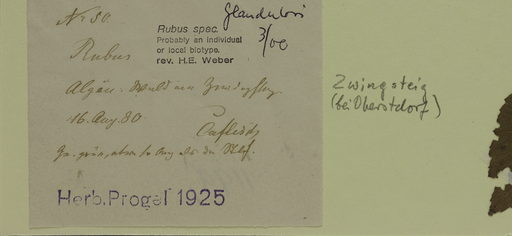 No 50.
Glandulosi
Rubus spec.
Probably an individual
or local biotype.
rev. H.E. Weber
3/00
Rubus
Algäu. Wald am
16. Aug. 80
Caflisch
Herb. Progel 1925
Zwingsteig
(bei Oberstdorf)